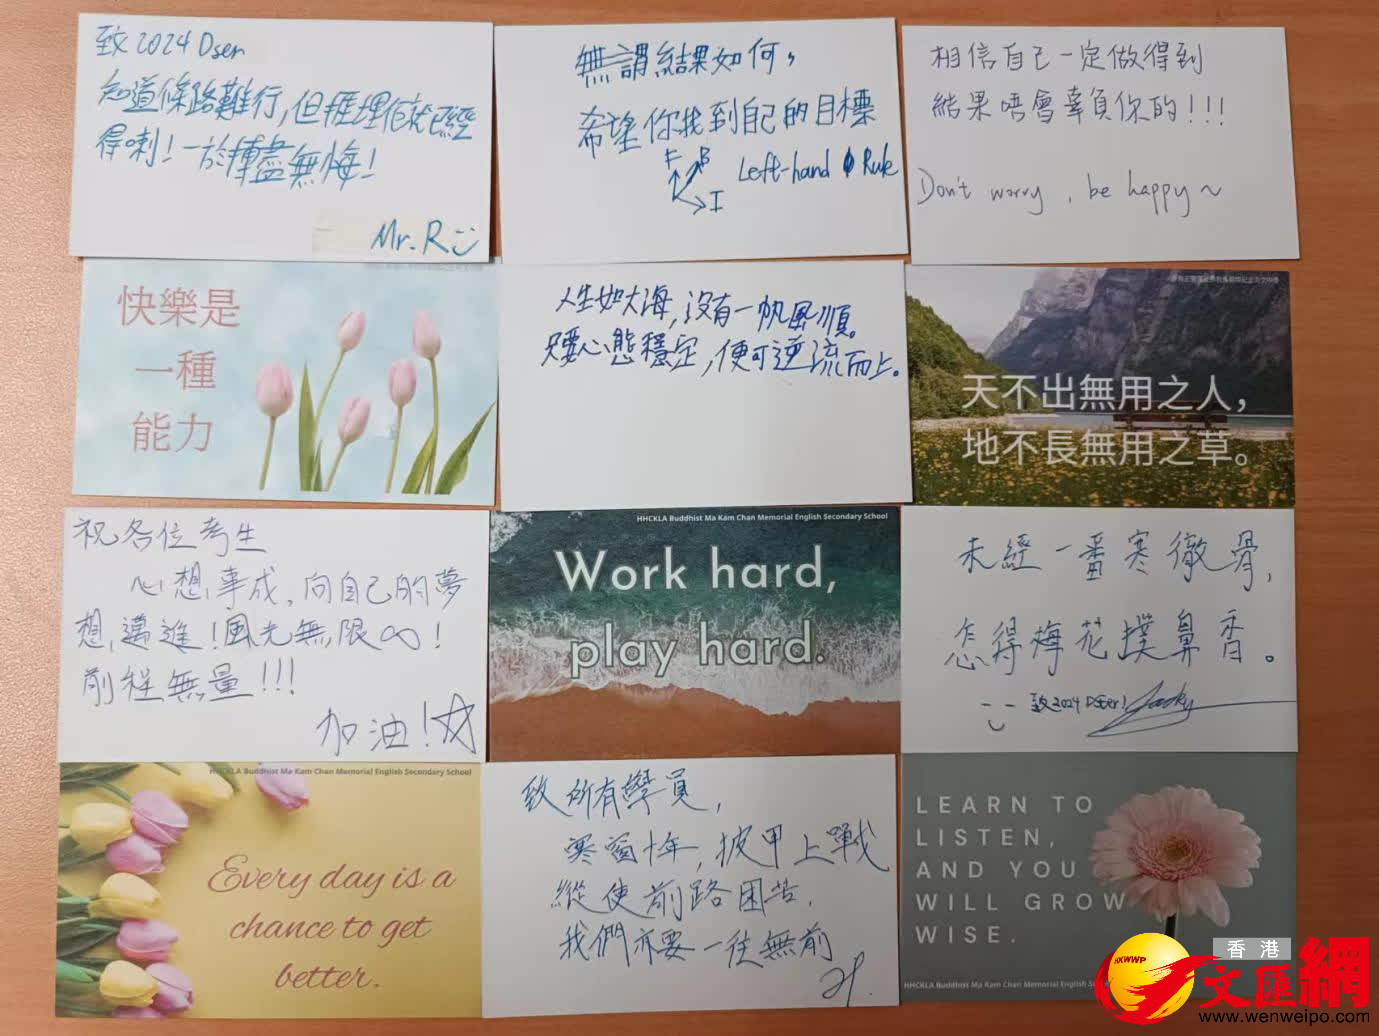 致2024 Dser
知道條路難行,但捱埋佢就已經
得喇!一於揮盡無悔!
Mr. R
無謂結果如何,
希望你找到自己的目標
F B
I
Left-hand Rule
相信自己一定做得到
結果唔會辜負你的!!!
Don't worry, be happy~
快樂是
一種
能力
人生如大海,沒有一帆風順。
只要心態穩定,便可逆流而上。
天不出無用之人,
地不長無用之草。
祝各位考生
心想事成,向自己的夢
想,邁進!風光無限∞!
前程無量!!!
加油!☆
HHCKLA Buddhist Ma Kam Chan Memorial English Secondary School
Work hard,
play hard.
未經一番寒徹骨,
怎得梅花撲鼻香。
致2024 DSEer!
HHCKLA Buddhist Ma Kam Chan Memorial English Secondary School
Every day is a
chance to get
better.
致所有學員,
寒窗十年,披甲上戰
縱使前路困苦,
我們亦要一往無前
LEARN TO
LISTEN,
AND YOU
WILL GROW
WISE.
HHCKLA Buddhist Ma Kam Chan Memorial English Secondary
HKWWP
香港
文匯網
www.wenweipo.com